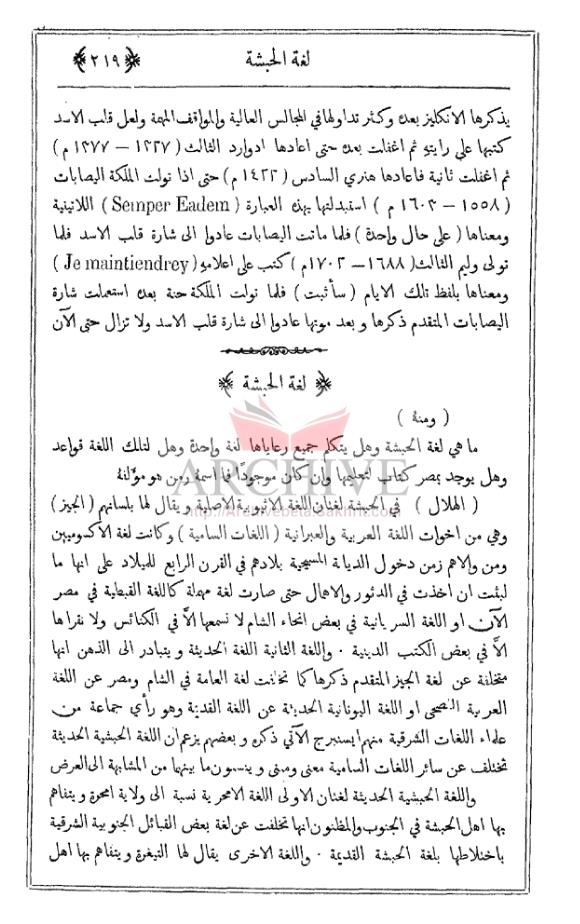 لغة الحبشة
﴿ ٢١٩ ﴾
يذكرها الانكليز بعده وكثر تداولها في المجالس العالية والمواقف المهمة ولعل قلب الاسد
كتبها على رايتهِ ثم اغفلت بعده حتى اعادها ادوارد الثالث ( ١٣٢٧ — ١٣٧٧ م )
ثم اغفلت ثانية فاعادها هنري السادس ( ١٤٢٢ م ) حتى اذا تولت الملكة اليصابات
( ١٥٥٨ — ١٦٠٣ م ) استبدلتها بهذه العبارة ( Semper Eadem ) اللاتينية
ومعناها ( على حال واحدة ) فلما ماتت اليصابات عادوا الى شارة قلب الاسد فلما
تولى وليم الثالث ( ١٦٨٨ — ١٧٠٢ م ) كتب على اعلامهِ ( Je maintiendrey )
ومعناها بلفظ تلك الايام ( سأثبت ) فلما تولت الملكة حنة بعده استعملت شارة
اليصابات المتقدم ذكرها وبعد موتها عادوا الى شارة قلب الاسد ولا تزال حتى الآن
﴿ لغة الحبشة ﴾
( ومنهُ )
ما هي لغة الحبشة وهل يتكلم جميع رعاياها لغة واحدة وهل لتلك اللغة قواعد
وهل يوجد بمصر كتاب لتعليمها وان كان موجودًا فما اسمهُ ومن هو مؤلفهُ
ARCHIVE
( الهلال ) في الحبشة لغتان اللغة الاثيوبية الاصلية ويقال لها بلسانهم ( الجيز )
وهي من اخوات اللغة العربية والعبرانية ( اللغات السامية ) وكانت لغة الاكدوميين
ومن والاهم زمن دخول الديانة المسيحية بلادهم في القرن الرابع للميلاد على انها ما
لبثت ان اخذت في الدثور والاهمال حتى صارت لغة مهملة كاللغة القبطية في مصر
الآن او اللغة السريانية في بعض انحاء الشام لا نسمعها الاَّ في الكنائس ولا نقرأها
الاَّ في بعض الكتب الدينية ٠ واللغة الثانية اللغة الحديثة ويتبادر الى الذهن انها
متخلفة عن لغة الجيز المتقدم ذكرها كما تخلفت لغة العامة في الشام ومصر عن اللغة
العربية الفصحى او اللغة اليونانية الحديثة عن اللغة القديمة وهو رأي جماعة من
علماء اللغات الشرقية منهم ايسنبرج الآتي ذكره وبعضهم يزعم ان اللغة الحبشية الحديثة
تختلف عن سائر اللغات السامية معنى ومبنى وينسبون ما بينهما من المشابهة الى العرض
واللغة الحبشية الحديثة لغتان الاولى اللغة الامحرية نسبة الى ولاية امحرة ويتفاهم
بها اهل الحبشة في الجنوب والمظنون انها تخلفت عن لغة بعض القبائل الجنوبية الشرقية
باختلاطها بلغة الحبشة القديمة ٠ واللغة الاخرى يقال لها التيغرة ويتفاهم بها اهل